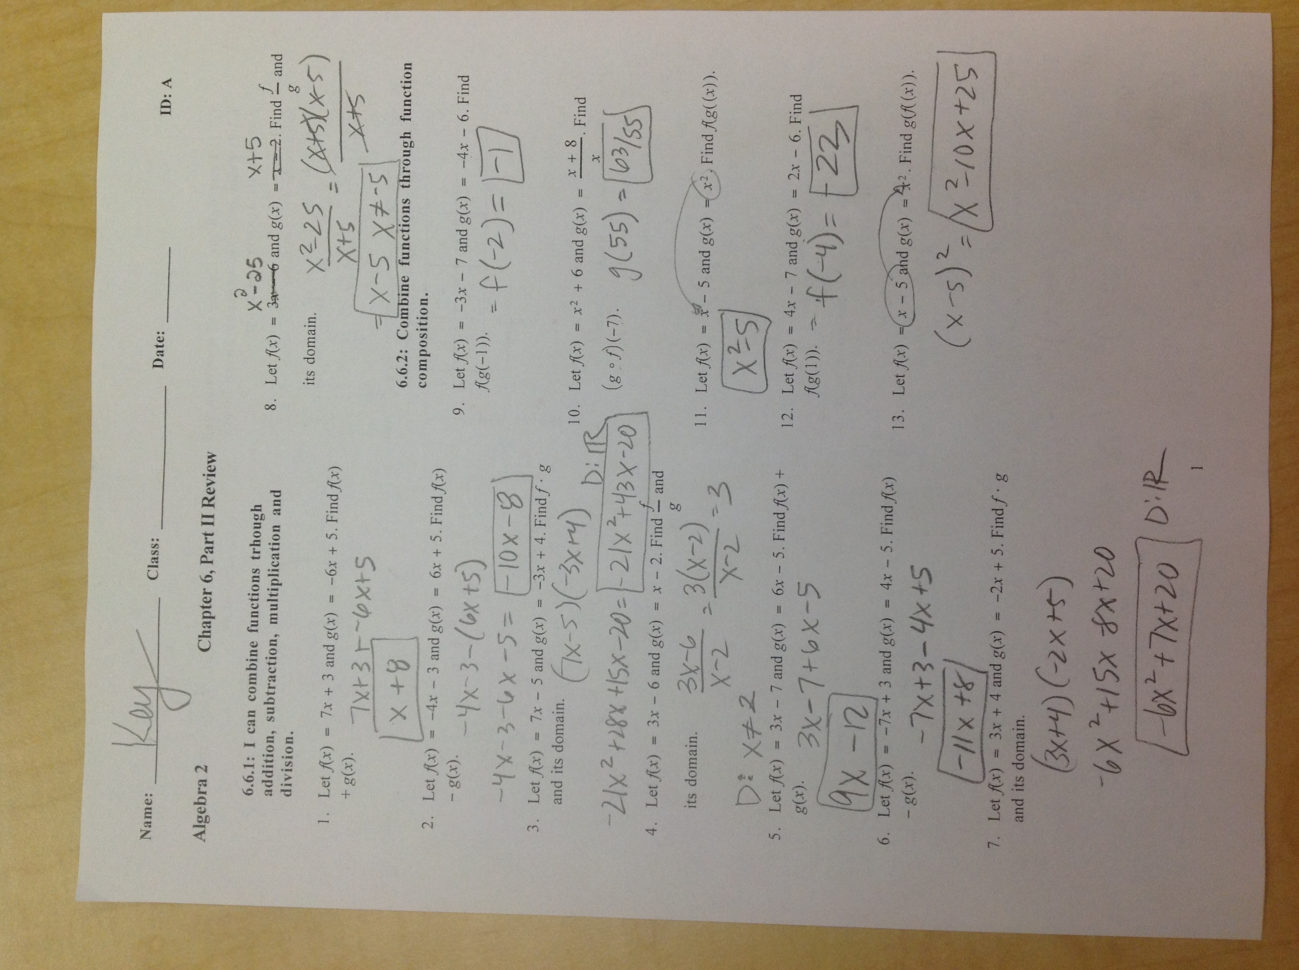 Name: Key Class: ________ Date: ________ ID: A
Algebra 2 Chapter 6, Part II Review
6.6.1: I can combine functions trhough
addition, subtraction, multiplication and
division.
1. Let f(x) = 7x + 3 and g(x) = −6x + 5. Find f(x)
+ g(x).
7x+3 + -6x+5
x+8
2. Let f(x) = −4x − 3 and g(x) = 6x + 5. Find f(x)
− g(x).
-4x-3-(6x+5)
-4x-3-6x-5 = -10x-8
3. Let f(x) = 7x − 5 and g(x) = −3x + 4. Find f · g
and its domain. (7x-5)(-3x+4) D: ℝ
-21x²+28x+15x-20 = -21x²+43x-20
4. Let f(x) = 3x − 6 and g(x) = x − 2. Find f/g and
its domain. 3x-6/x-2 = 3(x-2)/x-2 = 3
D: x≠2
5. Let f(x) = 3x − 7 and g(x) = 6x − 5. Find f(x) +
g(x). 3x-7+6x-5
9x-12
6. Let f(x) = −7x + 3 and g(x) = 4x − 5. Find f(x)
− g(x). -7x+3-4x+5
-11x+8
7. Let f(x) = 3x + 4 and g(x) = −2x + 5. Find f · g
and its domain.
(3x+4)(-2x+5)
-6x²+15x-8x+20
-6x²+7x+20 D: ℝ
x²-25 x+5
8. Let f(x) = 3x − 6 and g(x) = x − 2. Find f/g and
its domain. x²-25/x+5 = (x+5)(x-5)/x+5
= x-5 x≠-5
6.6.2: Combine functions through function
composition.
9. Let f(x) = −3x − 7 and g(x) = −4x − 6. Find
f(g(−1)). = f(-2) = -1
10. Let f(x) = x² + 6 and g(x) = x + 8/x. Find
(g ∘ f)(−7). g(55) = 63/55
11. Let f(x) = x − 5 and g(x) = x². Find f(g((x)).
x²-5
12. Let f(x) = 4x − 7 and g(x) = 2x − 6. Find
f(g(1)). = f(-4) = -23
13. Let f(x) = x − 5 and g(x) = x². Find g(f((x)).
(x-5)² = x²-10x+25
1